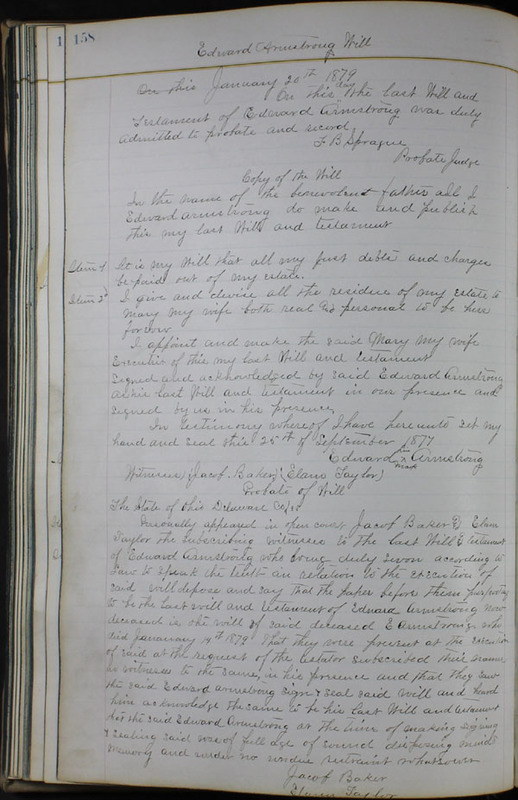 1 158
Edward Armstrong Will
On this January 20th 1879
On this day the last Will and
Testament of Edward Armstrong was duly
admitted to probate and record
F B Sprague
Probate Judge
Copy of the Will
In the name of the benevolent father all I
Edward Armstrong do make and publish
this my last Will and testament
Item 1 It is my Will that all my just debts and charges
be paid out of my estate.
Item 2d I give and devise all the residue of my estate to
Mary my wife both real & personal to be hers
forever
I appoint and make the said Mary my wife
Executor of this my last Will and testament
Signed and acknowledged by said Edward Armstrong
as his last Will and testament in our presence and
signed by us in his presence,
In testimony whereof I have hereunto set my
hand and seal this 25th of September 1877
Edward x Armstrong
mark
Witnesses (Jacob Baker) (Elam Taylor)
Probate of Will
The State of Ohio Delaware Co
Personally appeared in open court Jacob Baker & Elam
Taylor the subscribing witnesses to the last Will & testament
of Edward Armstrong who being duly sworn according to
law to speak the truth in relation to the execution of
said will depose and say that the paper before them purporting
to be the last will and testament of Edward Armstrong now
deceased is the will of said deceased E Armstrong, who
died January 14th 1879 That they were present at the execution
of said at the request of the testator subscribed their names
as witnesses to the same, in his presence and that they saw
the said Edward Armstrong sign & seal said will and heard
him acknowledge the same to be his last Will and testament
that the said Edward Armstrong at the time of making signing
& sealing said was of full age of sound disposing mind
memory and under no undue restraint whatsoever
Jacob Baker
Elam Taylor